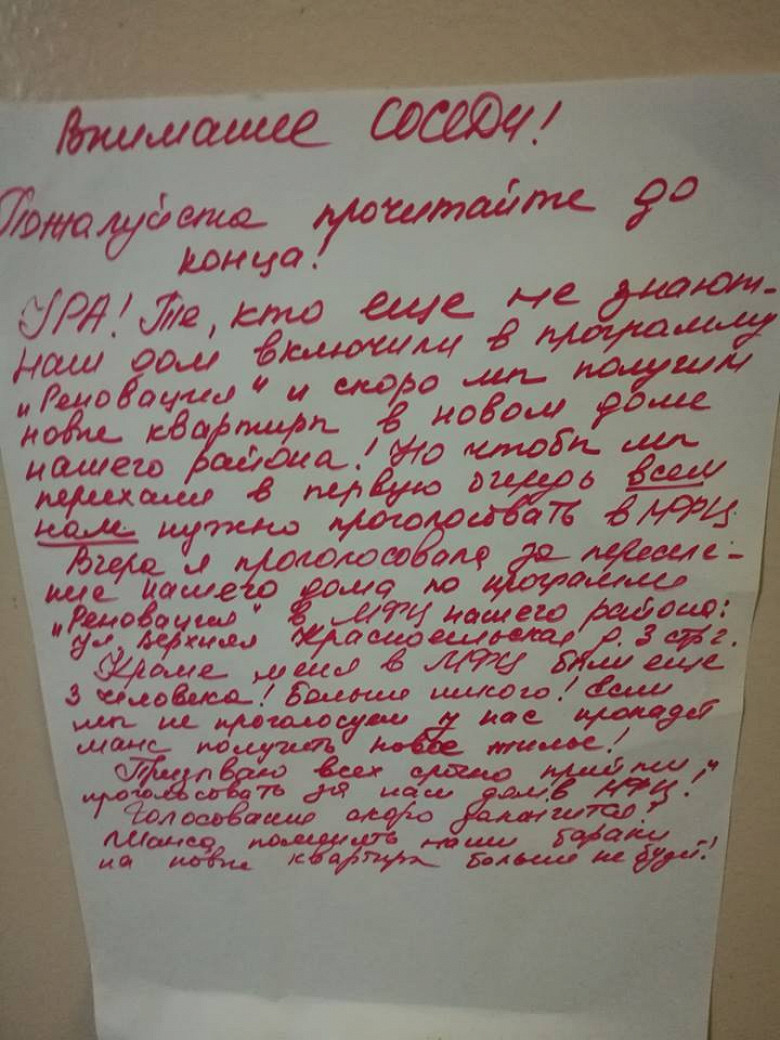 Внимание СОСЕДИ!
Пожалуйста прочитайте до
конца!
УРА! Те, кто еще не знают-
наш дом включили в программу
"Реновация" и скоро мы получим
новые квартиры в новом доме
нашего района! Но чтобы мы
переехали в первую очередь всем
нам нужно проголосвать в МФЦ
Вчера я проголосовала за переселе-
ние нашего дома по программе
"Реновация" в МФЦ нашего района:
ул. Верхняя Красносельская д. 3 стр 2.
Кроме меня в МФЦ были еще
3 человека! Больше никого! Если
мы не проголосуем у нас пропадет
шанс получить новое жилье!
Призываю всех срочно прийти и
проголосвать за наш дом в МФЦ!
Голосование скоро закончится!
Шанса поменять наши бараки
на новые квартиры больше не будет!